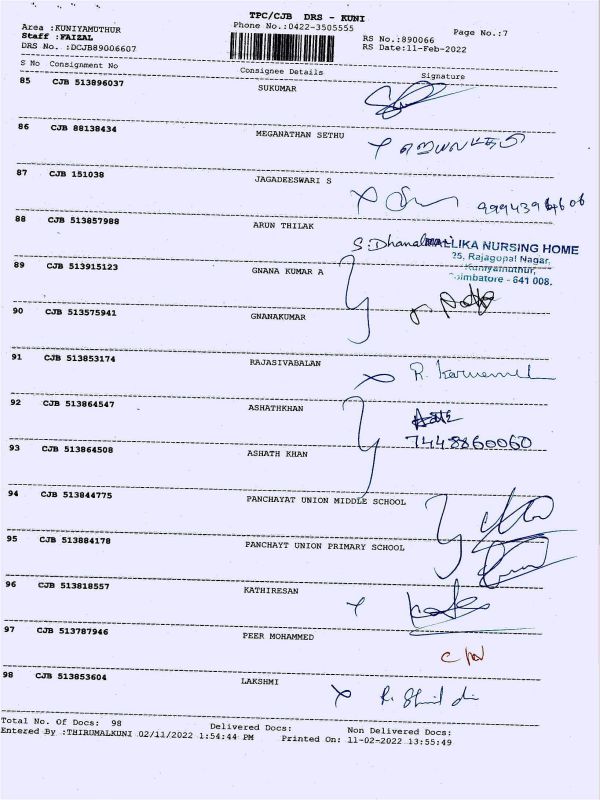 TPC/CJB DRS - KUNI
Area :KUNIYAMUTHUR
Phone No.:0422-3505555
Page No.:7
Staff :FAIZAL
RS No.:890066
DRS No. :DCJB89006607
RS Date:11-Feb-2022
S No Consignment No Consignee Details Signature
85 CJB 513896037 SUKUMAR
86 CJB 88138434 MEGANATHAN SETHU
87 CJB 151038 JAGADEESWARI S
9994396606
88 CJB 513857988 ARUN THILAK
MALLIKA NURSING HOME
25, Rajagopal Nagar,
Kuniyamuthur,
Coimbatore - 641 008.
89 CJB 513915123 GNANA KUMAR A
90 CJB 513575941 GNANAKUMAR
91 CJB 513853174 RAJASIVABALAN
92 CJB 513864547 ASHATHKHAN
7448860060
93 CJB 513864508 ASHATH KHAN
94 CJB 513844775 PANCHAYAT UNION MIDDLE SCHOOL
95 CJB 513884178 PANCHAYT UNION PRIMARY SCHOOL
96 CJB 513818557 KATHIRESAN
97 CJB 513787946 PEER MOHAMMED
98 CJB 513853604 LAKSHMI
Total No. Of Docs: 98 Delivered Docs: Non Delivered Docs:
Entered By :THIRUMALKUNI 02/11/2022 1:54:44 PM Printed On: 11-02-2022 13:55:49